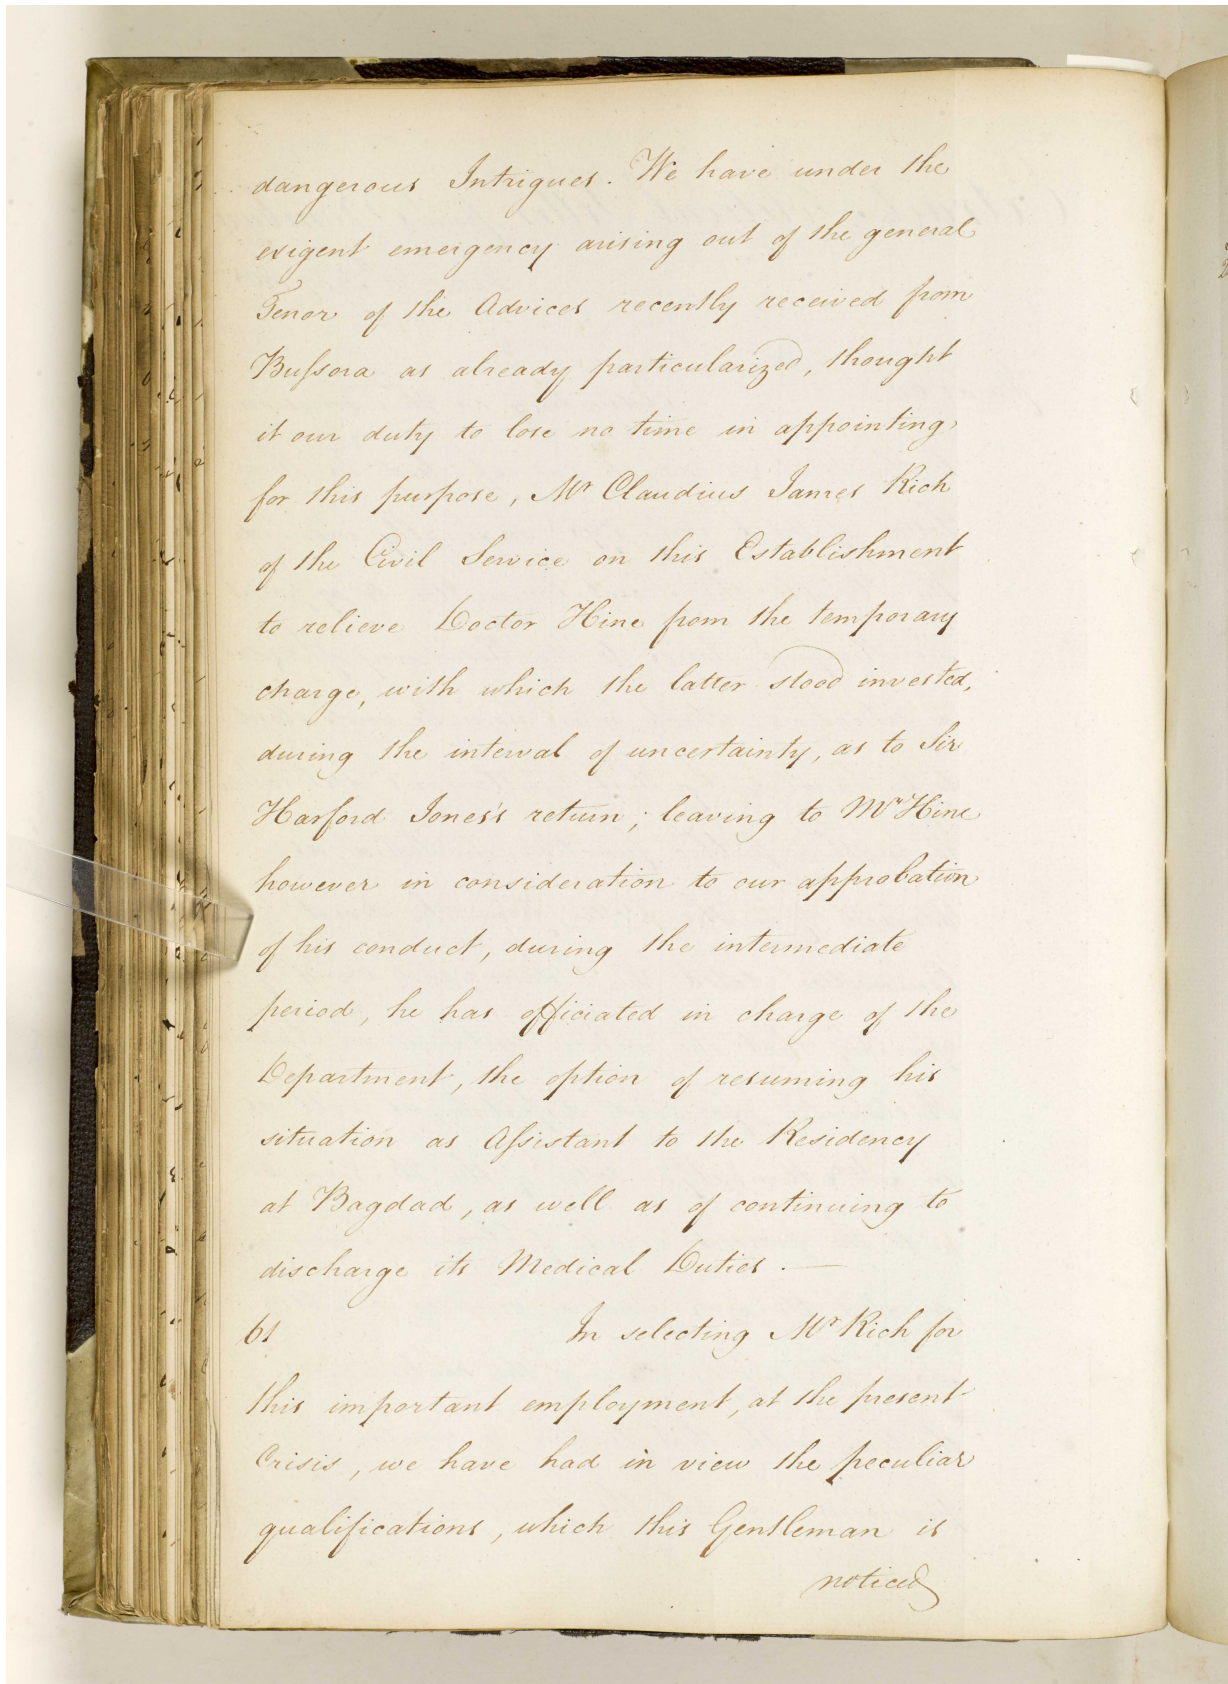 dangerous Intrigues. We have under the
exigent emergency arising out of the general
Tenor of the Advices recently received from
Bußora as already particularized, thought
it our duty to lose no time in appointing,
for this purpose, Mr Claudius James Rich
of the Civil Service on this Establishment
to relieve Doctor Hine from the temporary
charge, with which the latter stood invested,
during the interval of uncertainty, as to Sir
Harford Jones's return; leaving to Mr Hine
however in consideration to our approbation
of his conduct, during the intermediate
period, he has officiated in charge of the
Department, the option of resuming his
situation as Aßistant to the Residency
at Bagdad, as well as of continuing to
discharge its Medical Duties. —
61 In selecting Mr Rich for
this important employment, at the present
Crisis, we have had in view the peculiar
qualifications, which this Gentleman is
noticed